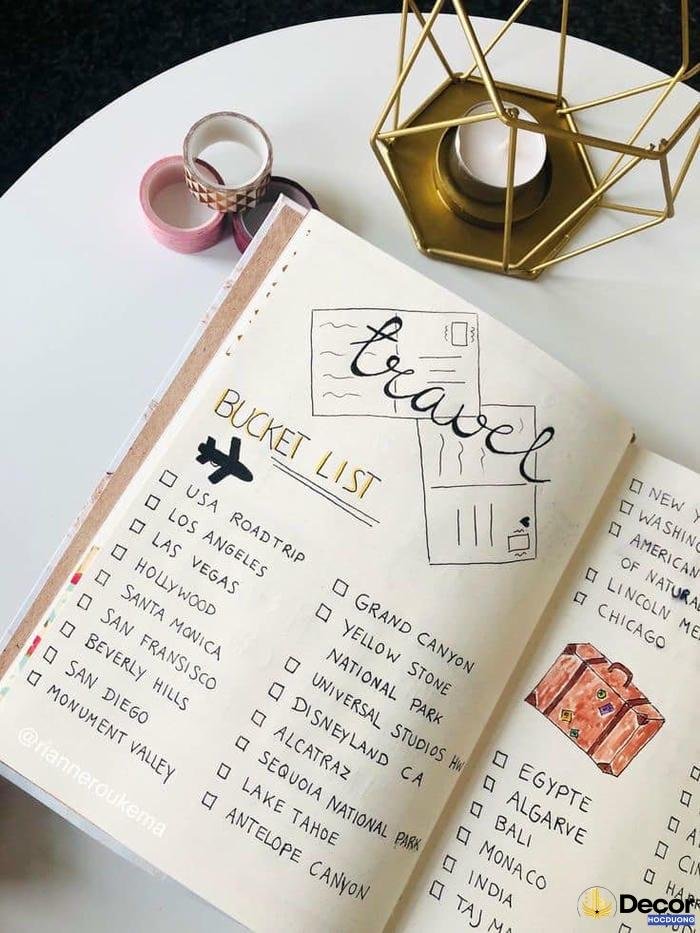 travel
BUCKET LIST
USA ROADTRIP
LOS ANGELES
LAS VEGAS
HOLLYWOOD
SANTA MONICA
SAN FRANSISCO
BEVERLY HILLS
SAN DIEGO
MONUMENT VALLEY
GRAND CANYON
YELLOW STONE
NATIONAL PARK
UNIVERSAL STUDIOS HW
DISNEYLAND CA
ALCATRAZ
SEQUOIA NATIONAL PARK
LAKE TAHOE
ANTELOPE CANYON
NEW
AMERICAN
OF
LINCOLN
CHICAGO
EGYPTE
ALGARVE
BALI
MONACO
INDIA
TAJ
@rianneroukema
Decor
HOCDUONG